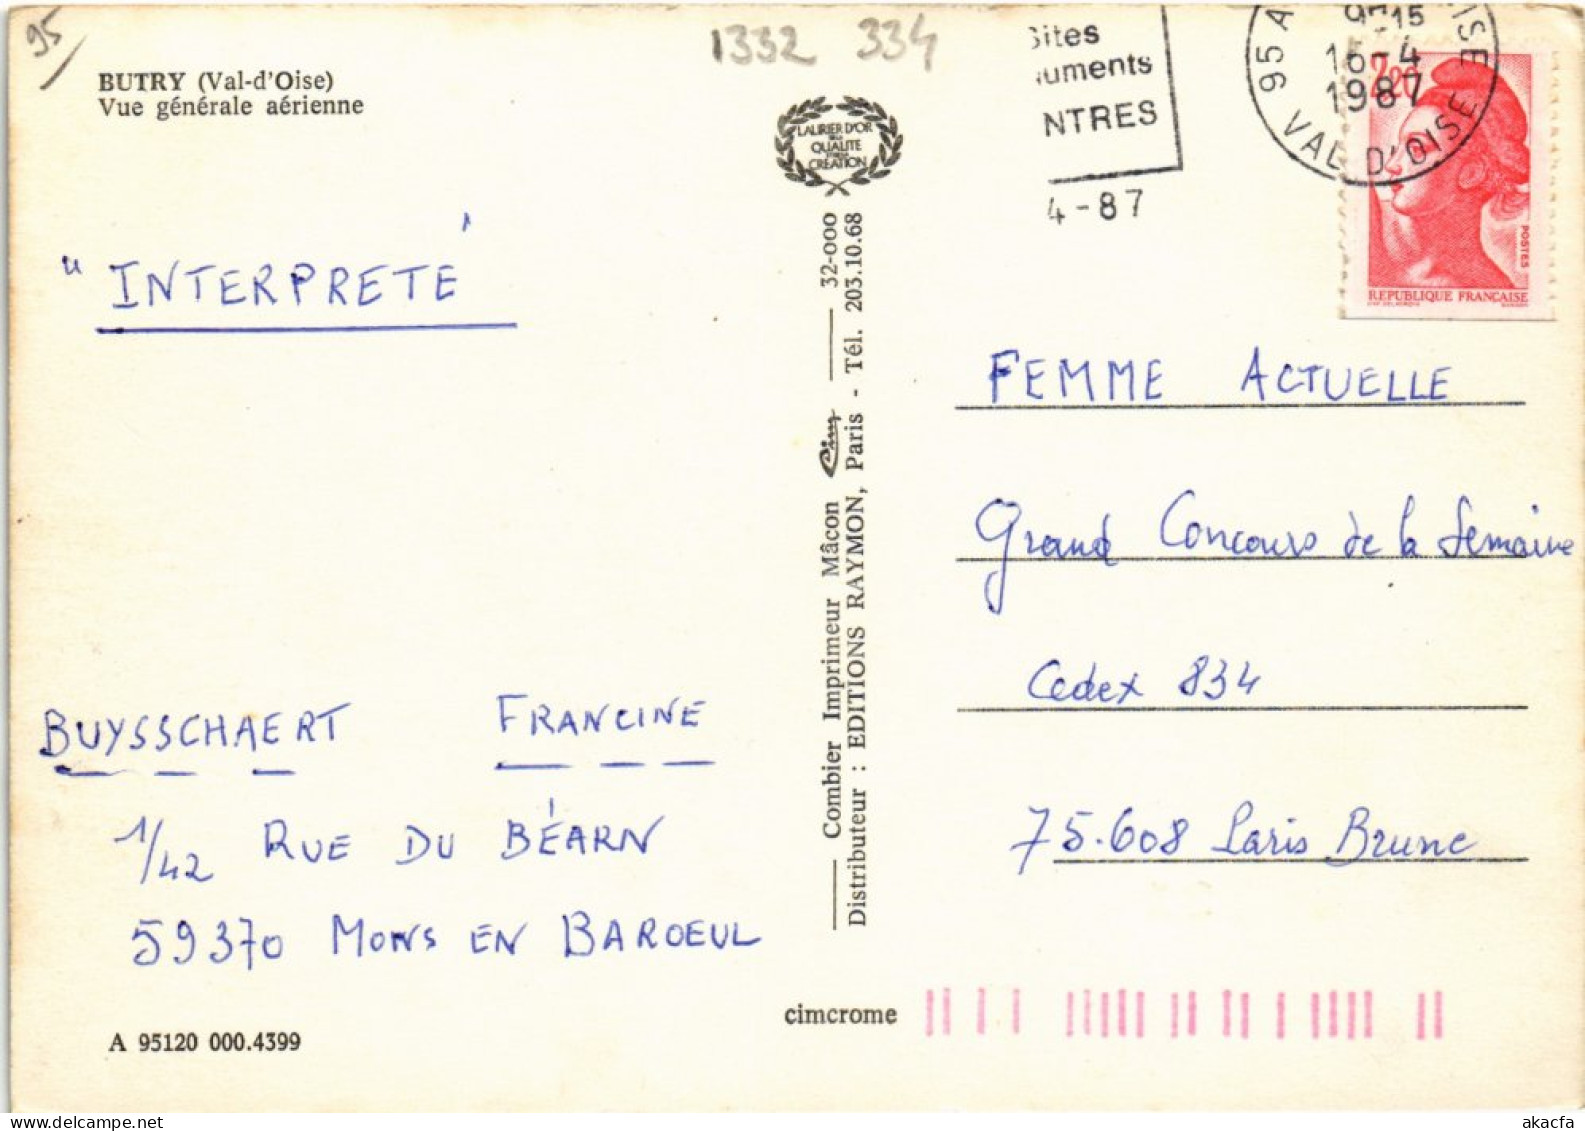 95
1332 334
BUTRY (Val-d'Oise)
Vue générale aérienne
LAURIER D'OR
QUALITE
CREATION
Sites
uments
NTRES
4-87
95 A
15
16-4
1987
VAL D'OISE
2,20
POSTES
REPUBLIQUE FRANÇAISE
"INTERPRETE'
FEMME ACTUELLE
Grand Concours de la Semaine
Cedex 834
75.608 Paris Brune
BUYSSCHAERT FRANCINE
1/42 RUE DU BÉARN
59370 MONS EN BAROEUL
Combier Imprimeur Mâcon Cim 32-000
Distributeur : EDITIONS RAYMON, Paris - Tél. 203.10.68
cimcrome
A 95120 000.4399
www.delcampe.net
akacfa